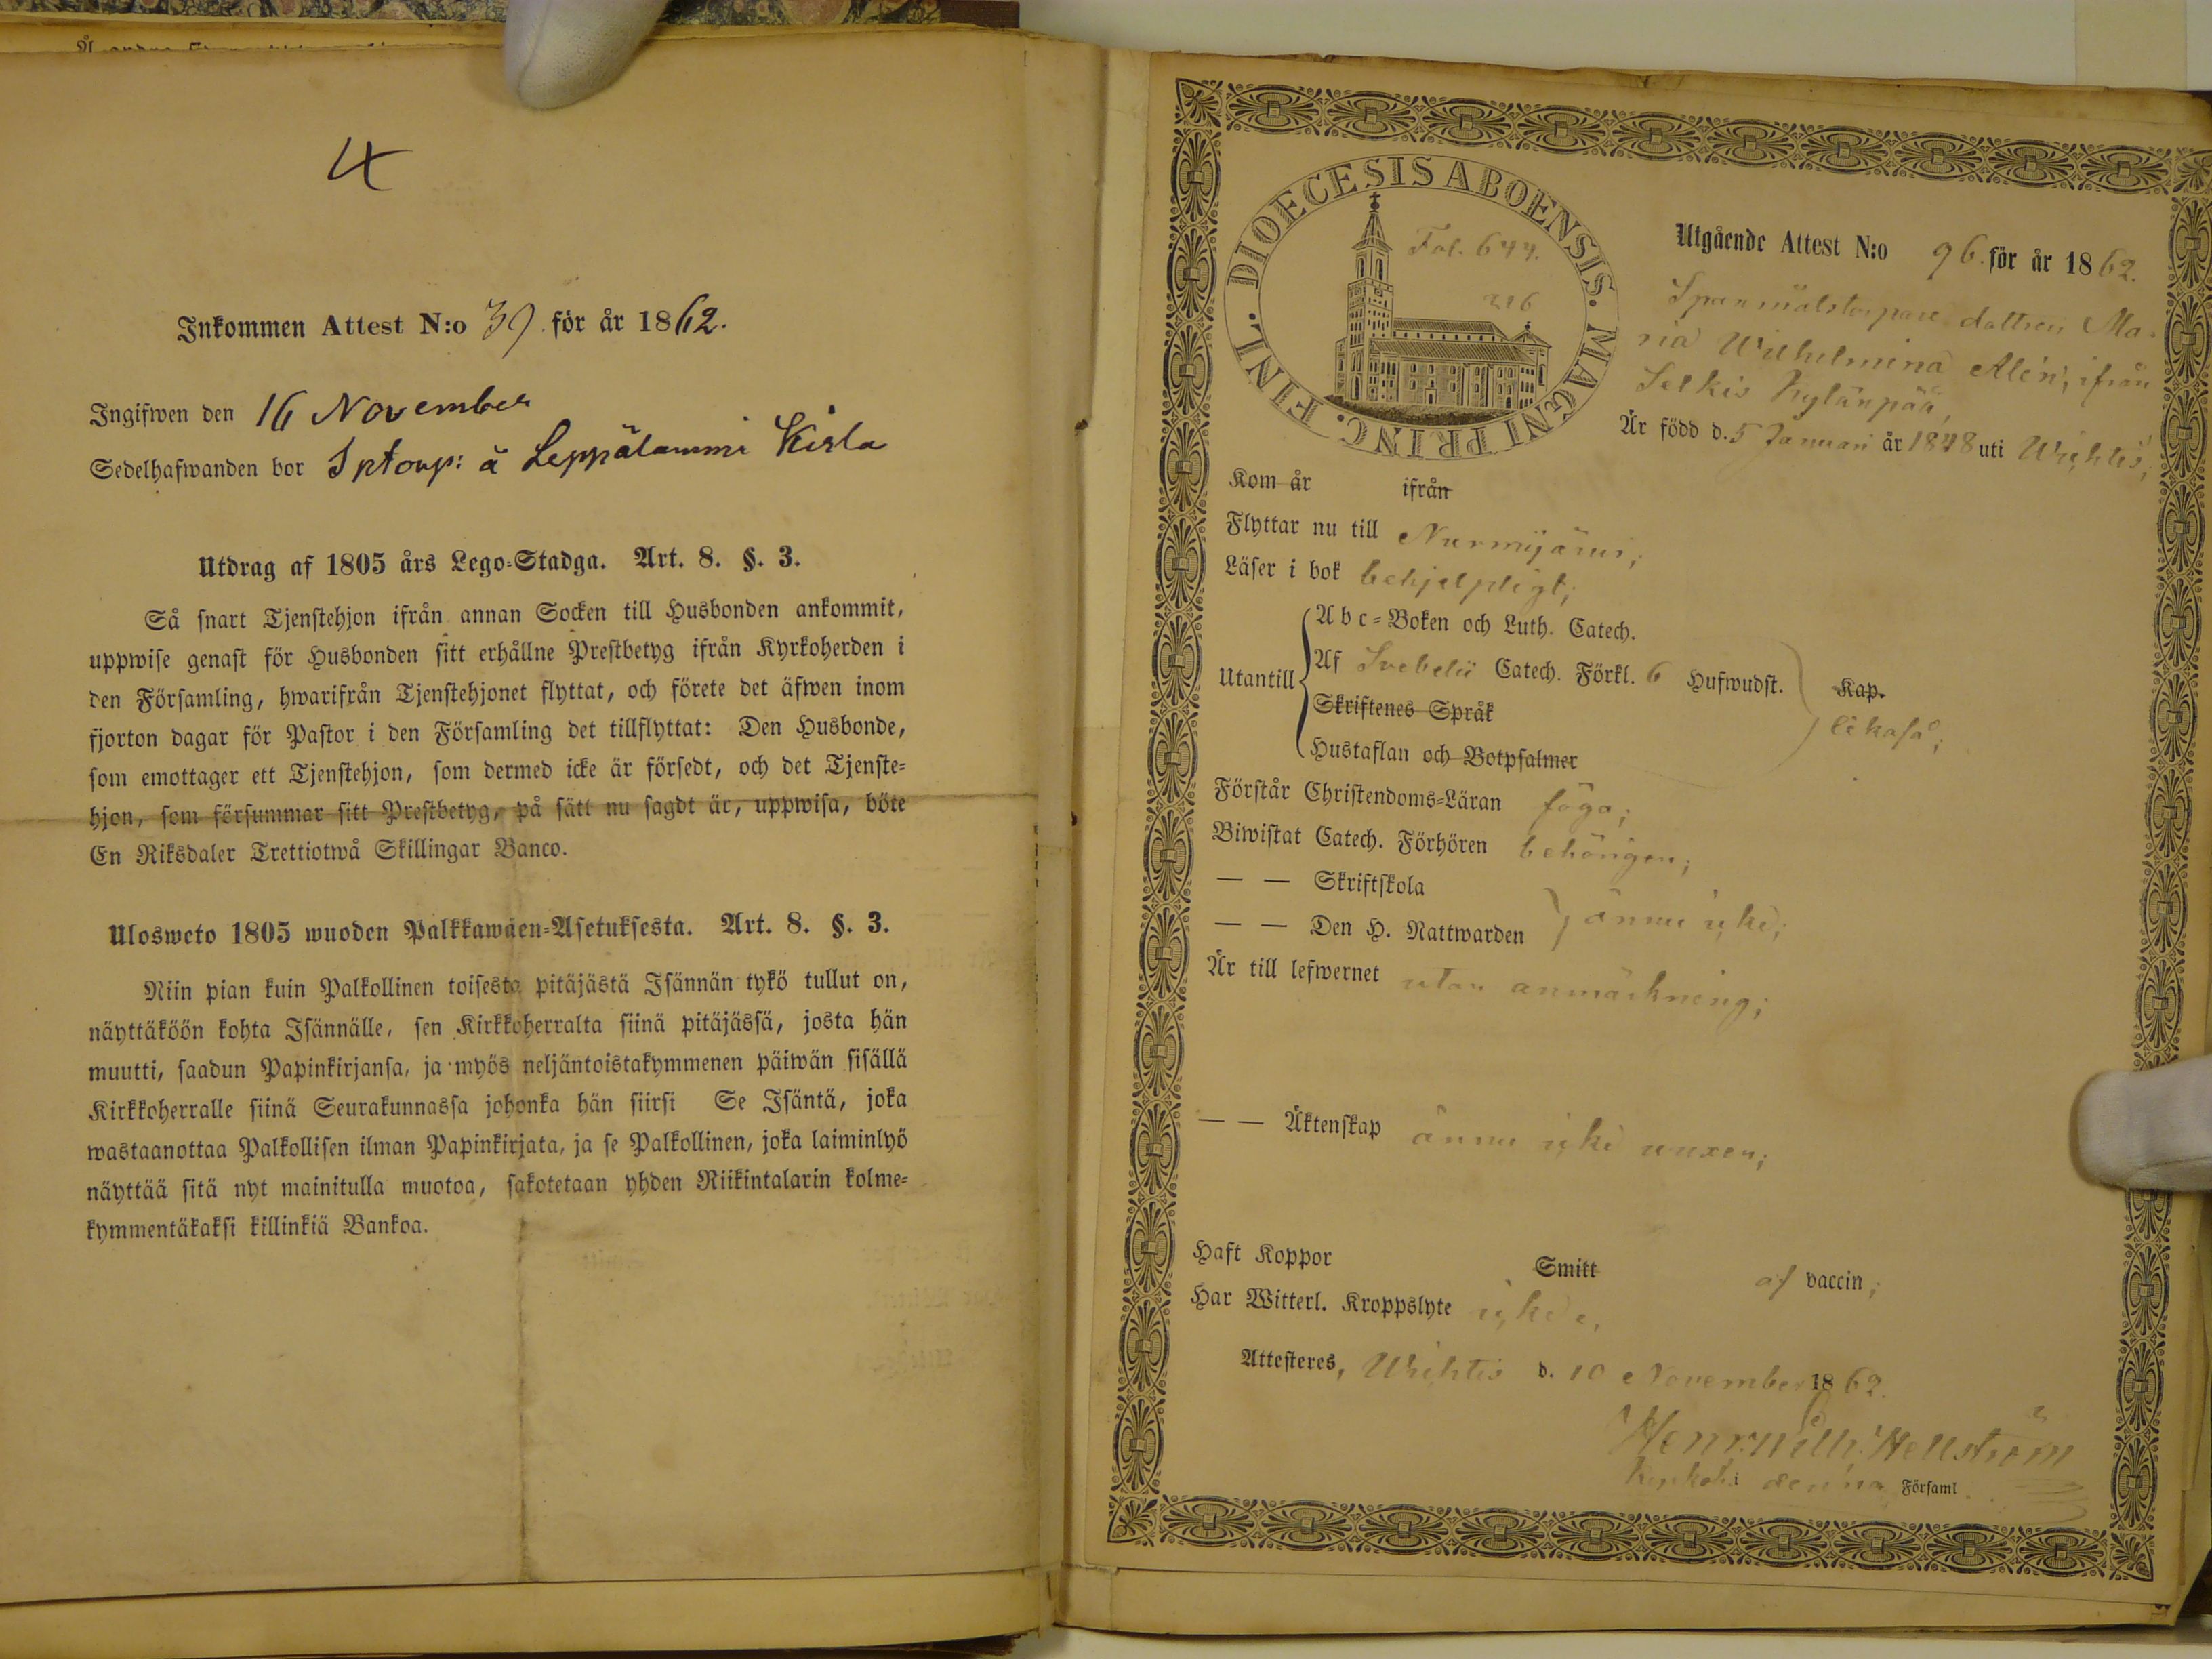 4
Inkommen Attest N:o 39 för år 1862.
Ingifwen den 16 November
Sedelhafwanden bor Sptorp: å Leppälammi Kirla
Utdrag af 1805 års Lego-Stadga. Art. 8. §. 3.
Så snart Tjenstehjon ifrån annan Socken till Husbonden ankommit,
uppwise genast för Husbonden sitt erhållne Prestbetyg ifrån Kyrkoherden i
den Församling, hwarifrån Tjenstehjonet flyttat, och förete det äfwen inom
fjorton dagar för Pastor i den Församling det tillflyttat: Den Husbonde,
som emottager ett Tjenstehjon, som dermed icke är försedt, och det Tjenste-
hjon, som försummar sitt Prestbetyg, på sätt nu sagdt är, uppwisa, böte
En Riksdaler Trettiotwå Skillingar Banco.
Ulosweto 1805 wuoden Palkkawäen-Asetuksesta. Art. 8. §. 3.
Niin pian kuin Palkollinen toisesta pitäjästä Isännän tykö tullut on,
näyttäköön kohta Isännälle, sen Kirkkoherralta siinä pitäjässä, josta hän
muutti, saadun Papinkirjansa, ja myös neljäntoistakymmenen päiwän sisällä
Kirkkoherralle siinä Seurakunnassa johonka hän siirsi Se Isäntä, joka
wastaanottaa Palkollisen ilman Papinkirjata, ja se Palkollinen, joka laiminlyö
näyttää sitä nyt mainitulla muotoa, sakotetaan yhden Riikintalarin kolme-
kymmentäkaksi killinkiä Bankoa.
DIOECESIS ABOENSIS. MAGNI PRINC. FINL.
Fol. 644.
226
Utgående Attest N:o 96. för år 1862.
Spanmålstorpare dottren Ma-
ria Wilhelmina Alén, ifrån
Selkis Kylänpää,
Är född d. 5 Januari år 1848 uti Wichtis,
Kom år ifrån
Flyttar nu till Nurmijärvi;
Läser i bok behjelpligt;
Utantill
Abc-Boken och Luth. Catech.
Af Svebelii Catech. Förkl. 6 Hufwudst. Kap.
Skriftenes Språk
likaså;
Hustaflan och Botpsalmer
Förstår Christendoms-Läran föga;
Biwistat Catech. Förhören behörigen;
— — Skriftskola
— — Den H. Nattwarden ännu icke;
Är till lefwernet utan anmärkning;
— — Äktenskap ännu icke vuxen;
Haft Koppor Smitt af vaccin;
Har Witterl. Kroppslyte icke,
Attesteres, Wichtis d. 10 November 1862.
Henr. Wilh. Hellström
Kyrkoh. i denna Församl.